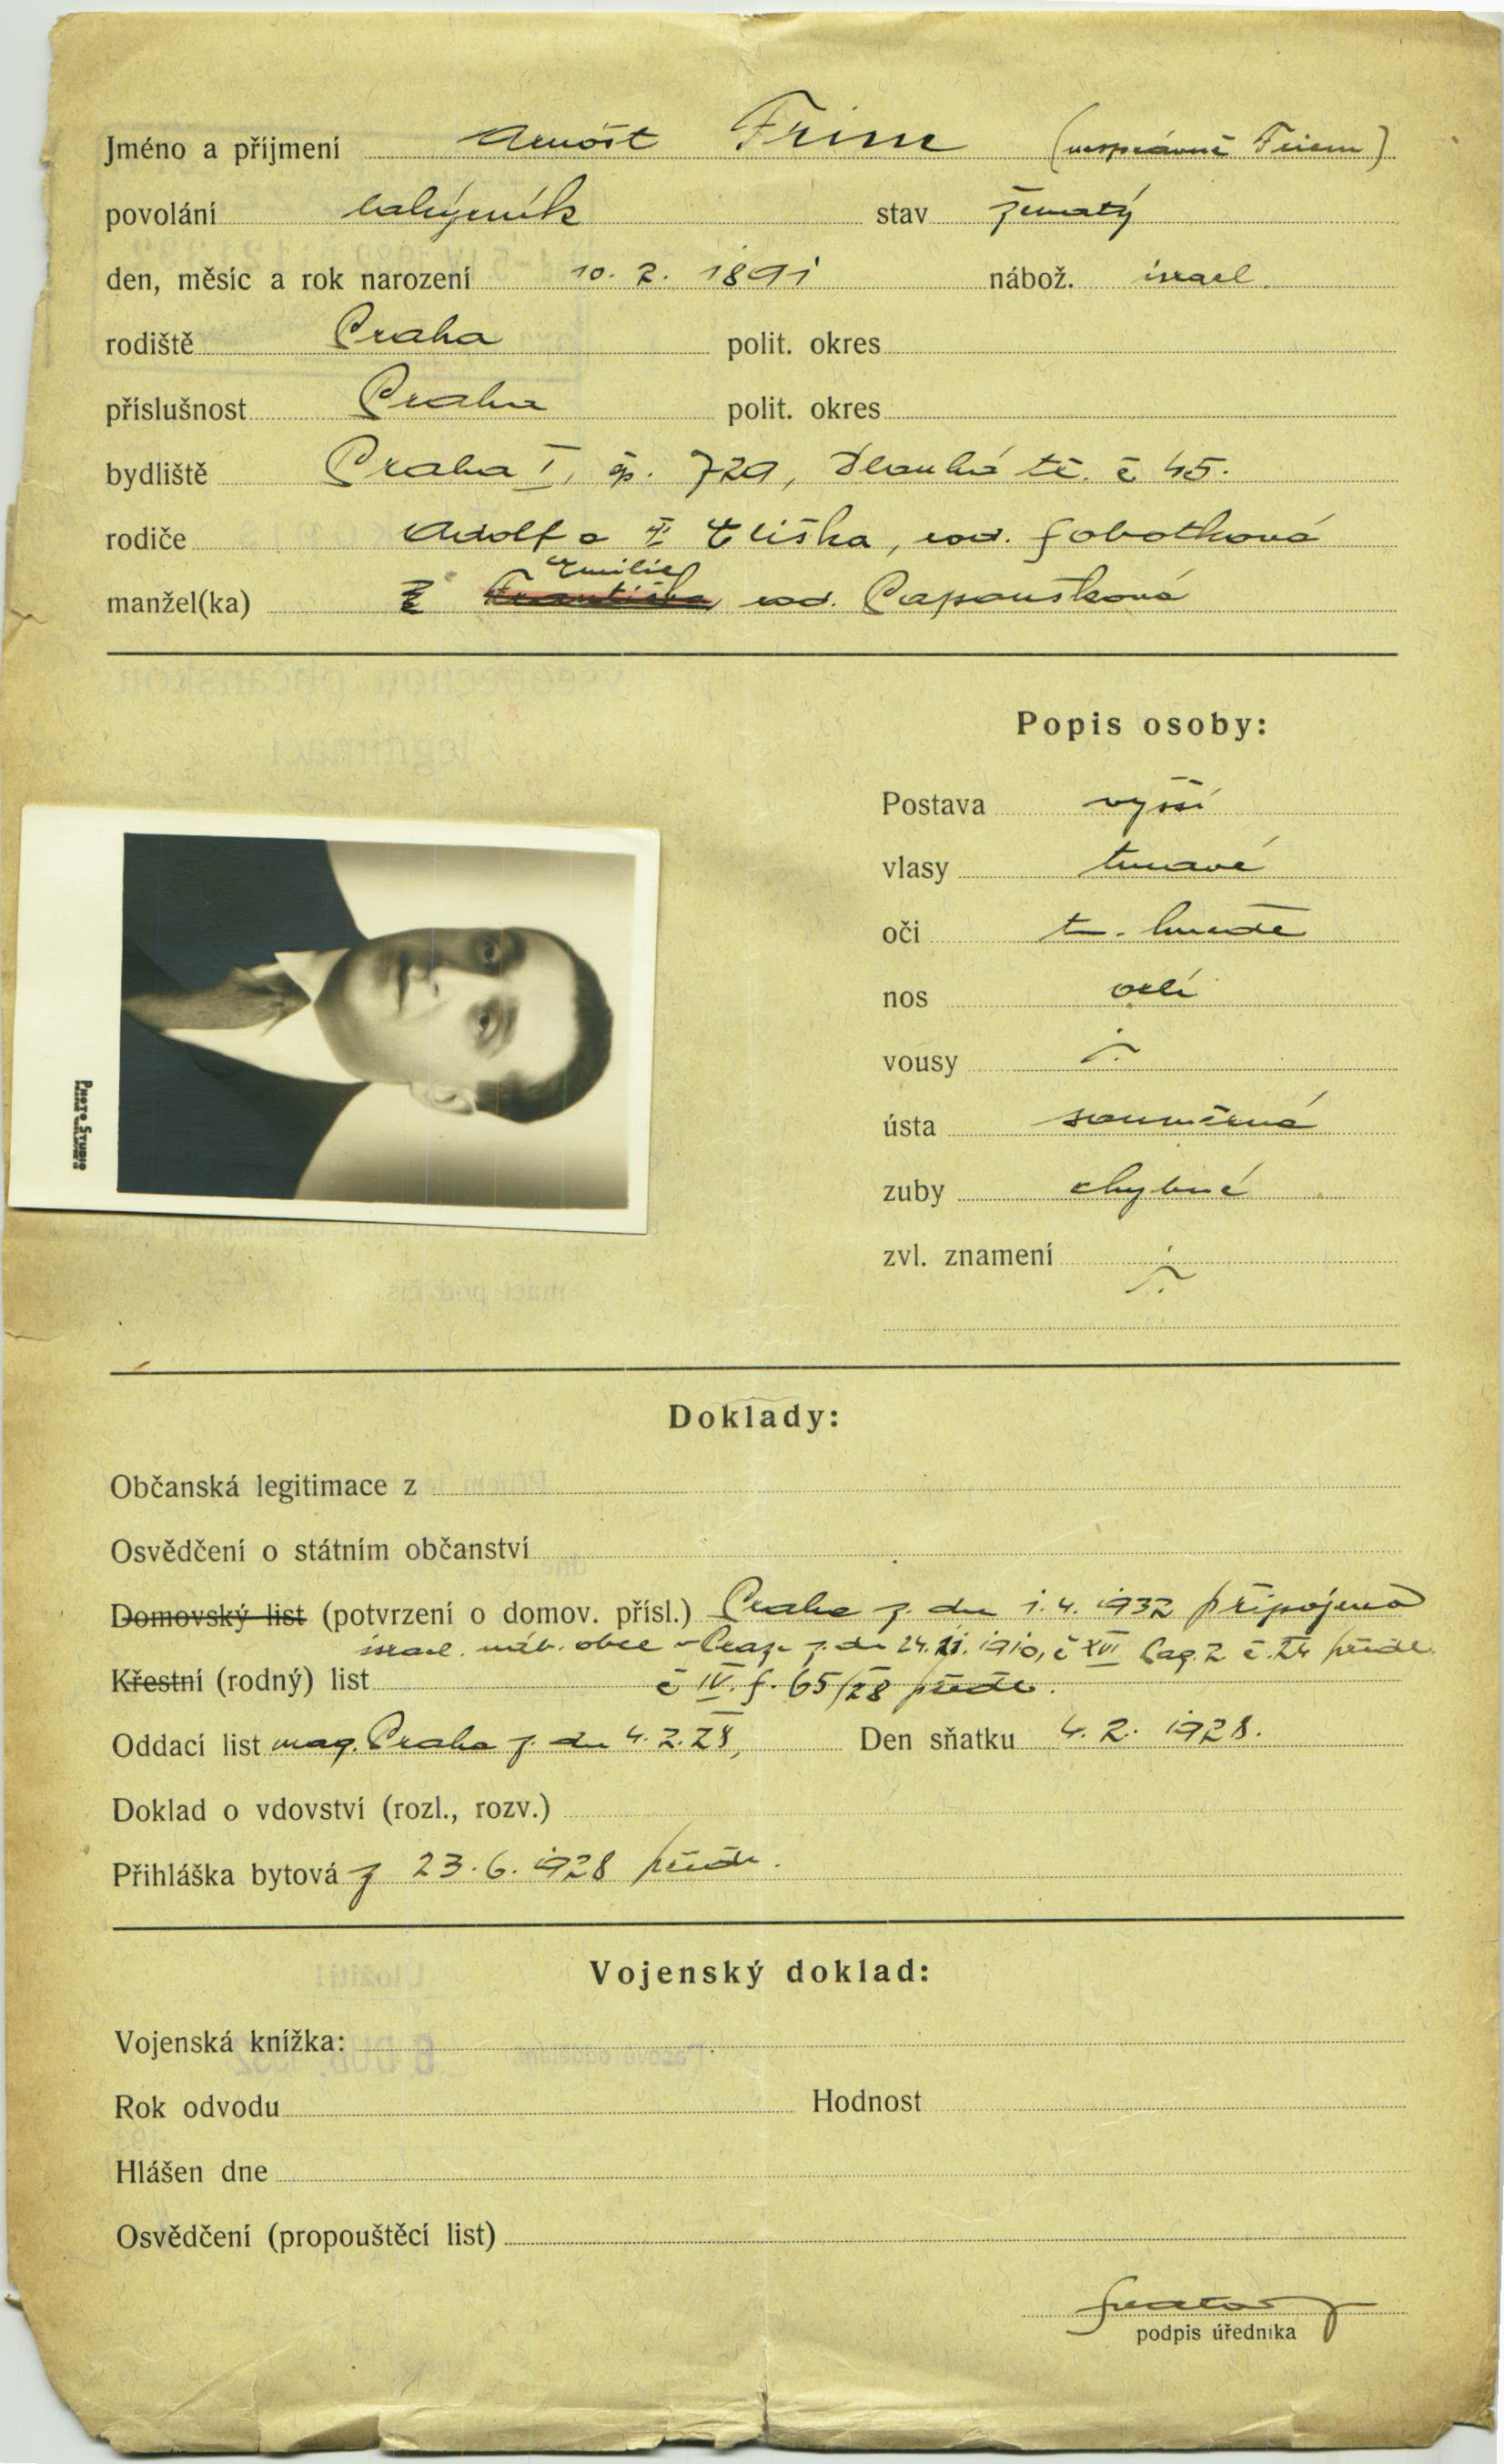 Jméno a příjmení Arnošt Frim (nesprávně Friem)
povolání stav ženatý
den, měsíc a rok narození 10. 2. 1891 nábož. israel.
rodiště Praha polit. okres
příslušnost Praha polit. okres
bydliště Praha I, čp. 729, Dlouhá tř. č 45.
rodiče Adolf a Eliška, roz. Sobotková
Emilie
manžel(ka) Františka roz. Papoušková
Popis osoby:
Postava vyšší
vlasy tmavé
oči t. hnědé
nos orlí
vousy
ústa souměrná
zuby chybné
zvl. znamení
PHOTO STUDIO
Doklady:
Občanská legitimace z
Osvědčení o státním občanství
Domovský list (potvrzení o domov. přísl.) Praha z. dne 1. 4. 1932 připojeno
israel. náb. obce v Praze z. dne 24. 11. 1910, č XVI pag. 2 č. 24 předl.
Křestní (rodný) list č IV. f. 65/28 předl.
Oddací list mag. Praha z. dne 4. 2. 28, Den sňatku 4. 2. 1928.
Doklad o vdovství (rozl., rozv.)
Přihláška bytová z 23. 6. 1928 předl.
Vojenský doklad:
Vojenská knížka:
Rok odvodu Hodnost
Hlášen dne
Osvědčení (propouštěcí list)
podpis úředníka